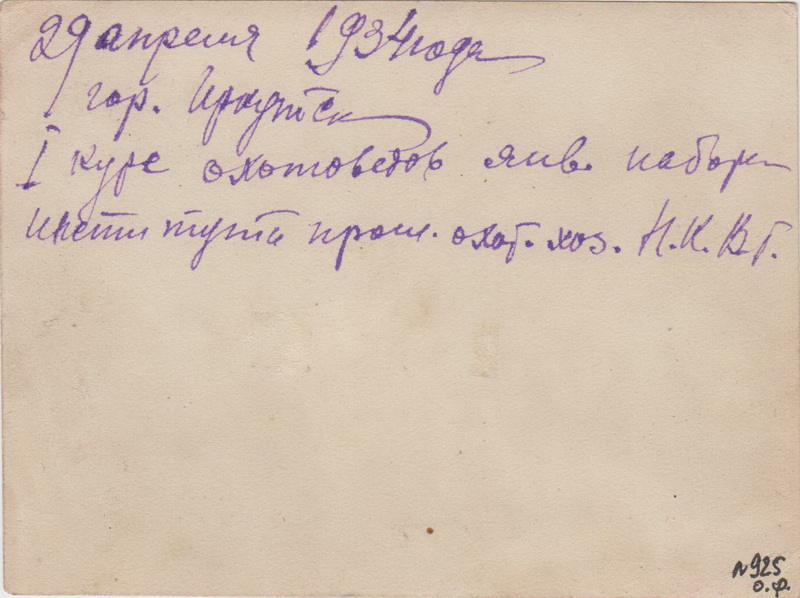 29 апреля 1934 года
гор. Иркутск
I курс охотоведов янв. набора
института пром. охот. хоз. Н.К.В.Т.
№925
о.ф.